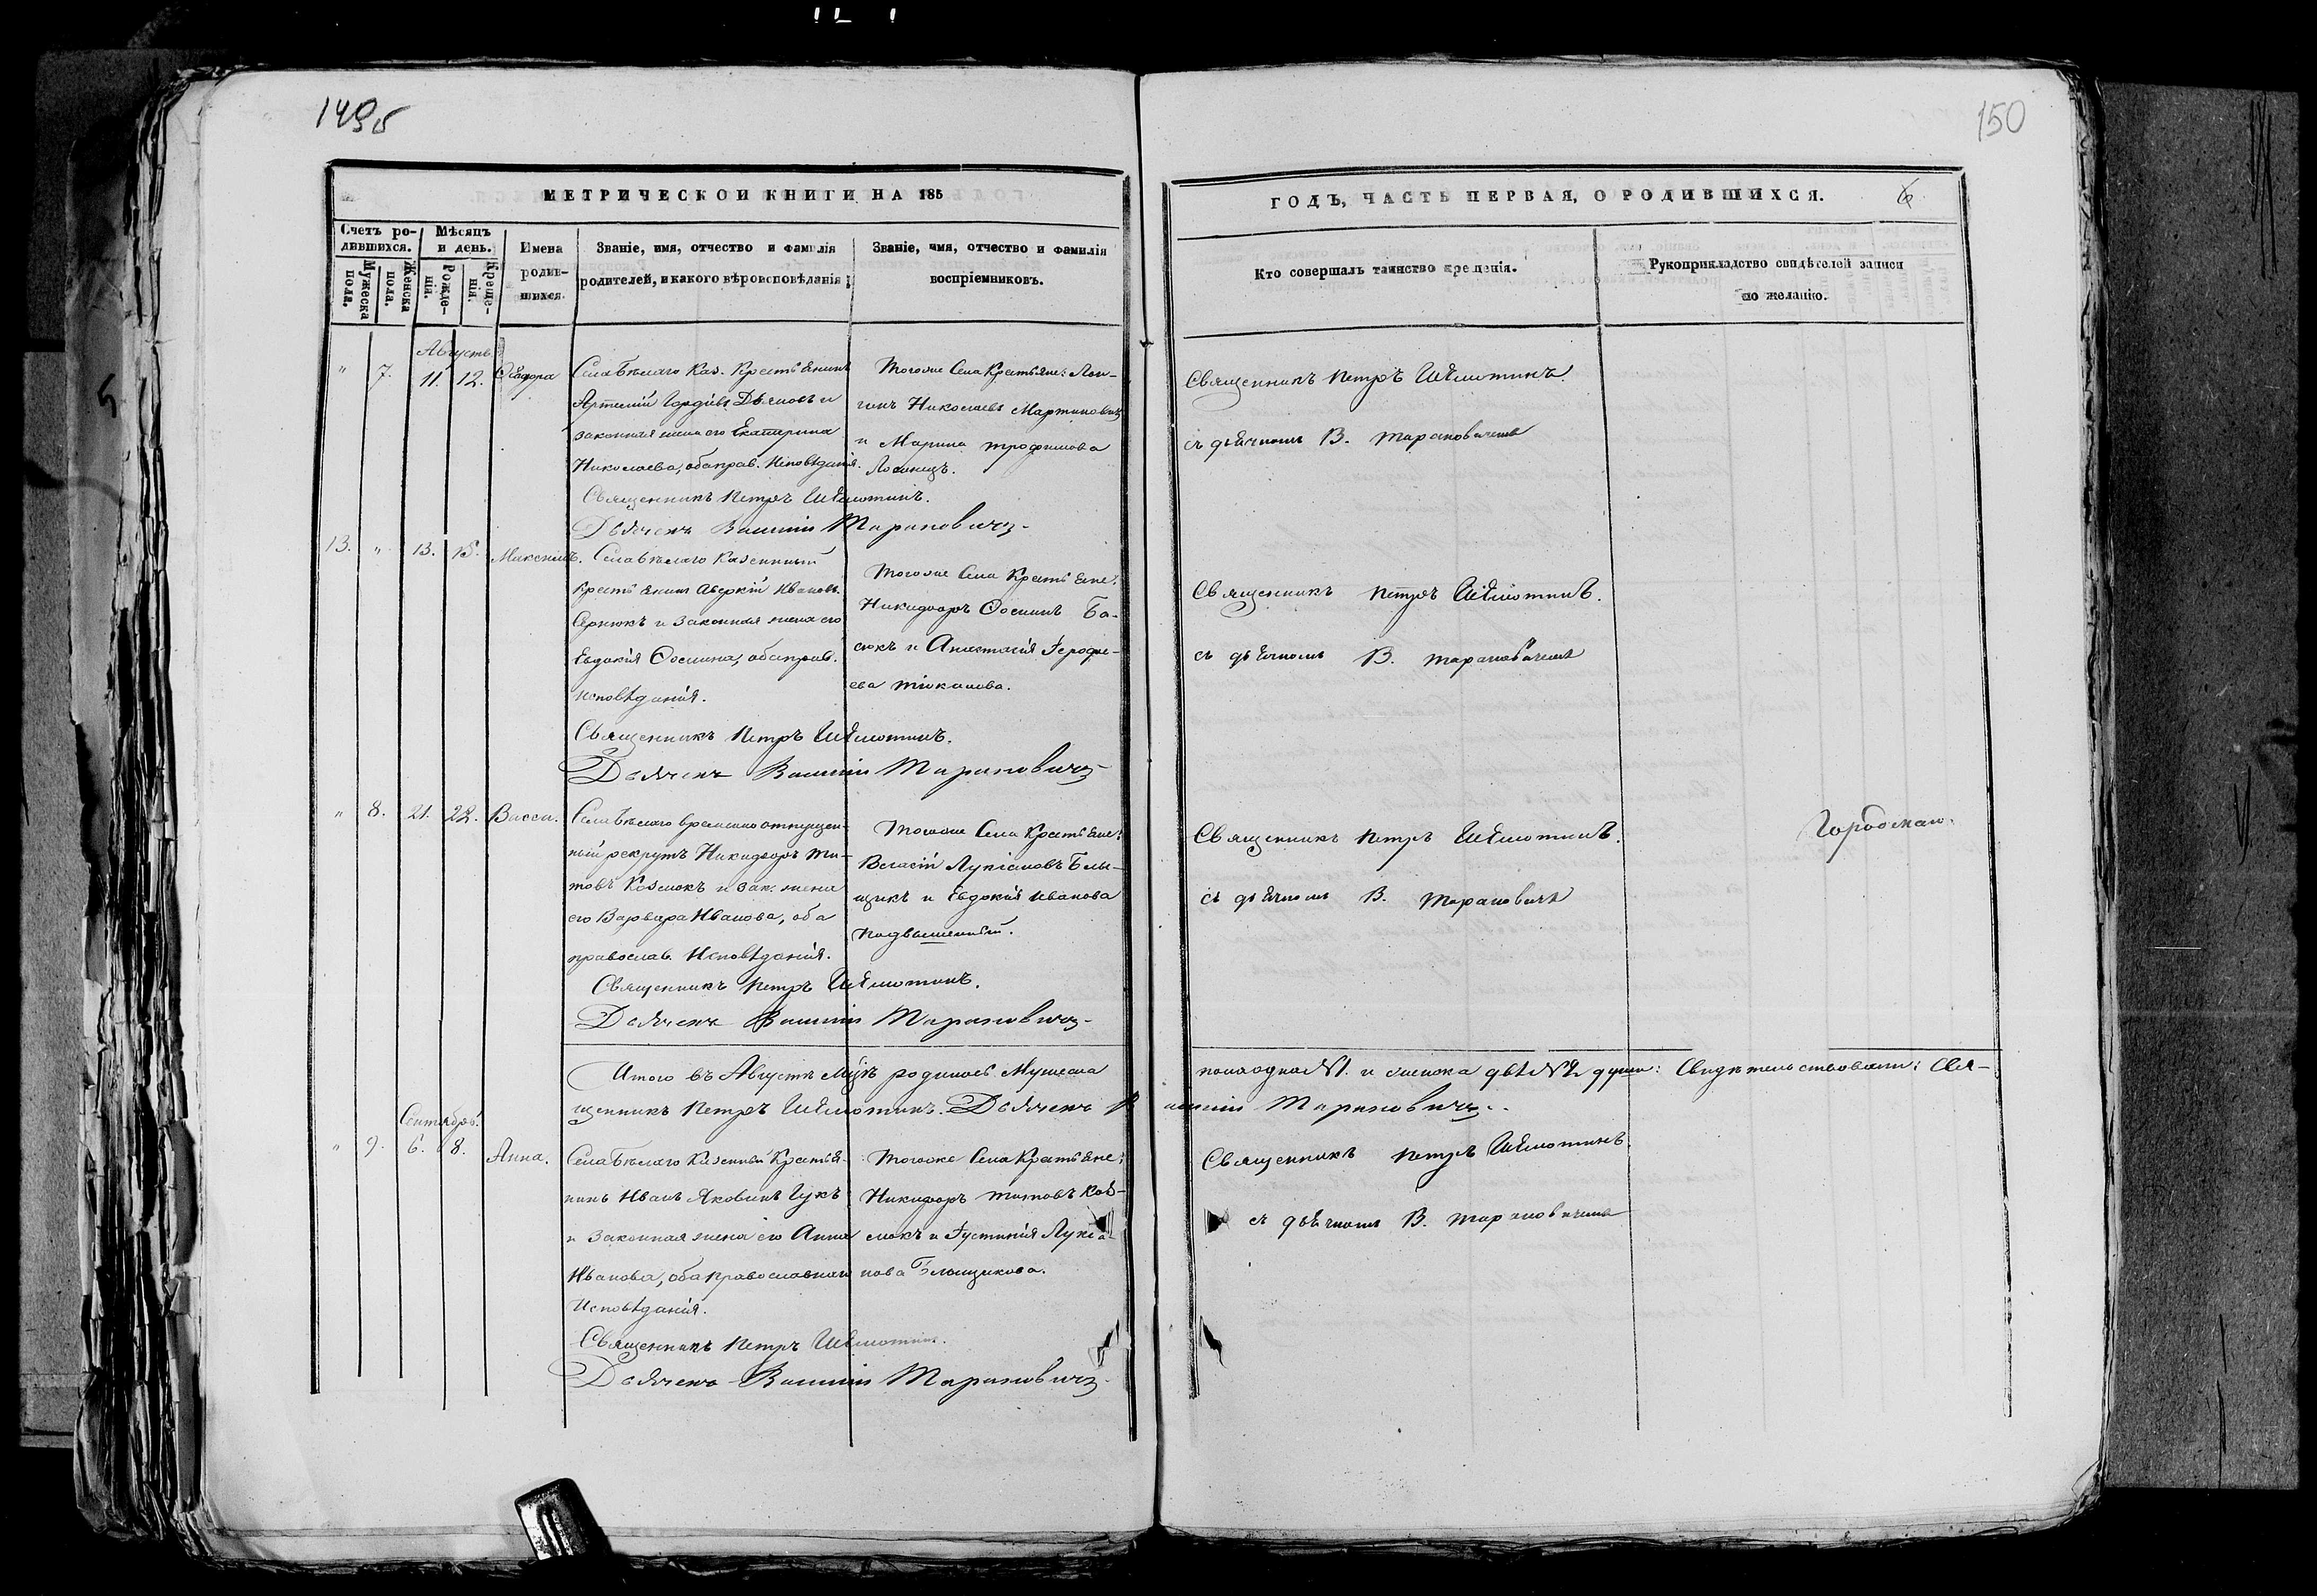 149б
150
МЕТРИЧЕСКОЙ КНИГИ НА 185
ГОДЪ, ЧАСТЬ ПЕРВАЯ, О РОДИВШИХСЯ.
6
Счетъ ро-
дившихся.
Мужеска
пола.
Женска
пола.
Мѣсяцъ
и день.
Рожде-
нія.
Креще-
нія.
Имена
родив-
шихся
Званіе, имя, отчество и фамилія
родителей, и какого вѣроисповѣданія;
Званіе, имя, отчество и фамилія
воспріемниковъ.
Кто совершалъ таинство крещенія.
Рукоприкладство свидѣтелей записи
по желанію.
Августъ
" 7. 11. 12. Ѳеодора
Села Бѣлаго Каз. Крестьянинъ
Артемій Гордіевъ и
законная жена его Екатерина
Николаева, оба прав. Исповѣданія.
Тогоже Села Крестьяне: Лон-
гинъ Николаевъ Мартиновичъ
и Марина Трофимова
Священникъ Петръ
Дьячекъ Василій Тарановичъ
Священникъ Петръ
съ дьячкомъ В. Тарановичемъ
13. " 13. 15. Максимъ.
Села Бѣлаго Казенный
Крестьянинъ Аверкій Ивановъ
и законная жена его
Евдокія Осипова, оба прав.
Исповѣданія.
Тогоже Села Крестьяне:
Никифоръ Осиповъ Ба-
сюкъ и Анастасія Герофе-
ева
Священникъ Петръ
Дьячекъ Василій Тарановичъ
Священникъ Петръ
съ дьячкомъ В. Тарановичемъ
" 8. 21. 22. Васса.
Села Бѣлаго временно отпущен-
ный рекрутъ Никифоръ Ти-
товъ Козмокъ и зак. жена
его Варвара Иванова, оба
православ. Исповѣданія.
Тогоже Села Крестьяне:
Власій Лукіановъ Блы-
щикъ и Евдокія Иванова
Священникъ Петръ
Дьячекъ Василій Тарановичъ
Священникъ Петръ
съ дьячкомъ В. Тарановичемъ
Итого въ Августѣ м-цѣ родилось Мужеска
пола одна №1. и женска двѣ №2 души: Свидѣтельствовали: Свя-
щенникъ Петръ Дьячекъ Василій Тарановичъ.
Сентябрь.
" 9. 6. 8. Анна.
Села Бѣлаго Казенный Крестья-
нинъ Иванъ Яковлевъ Гукъ
и законная жена его Анна
Иванова, оба православнаго
Исповѣданія.
Тогоже Села Крестьяне:
Никифоръ Титовъ Коз-
мокъ и Іустинія Лукіа-
нова Блыщикова.
Священникъ Петръ
Дьячекъ Василій Тарановичъ
Священникъ Петръ
съ дьячкомъ В. Тарановичемъ